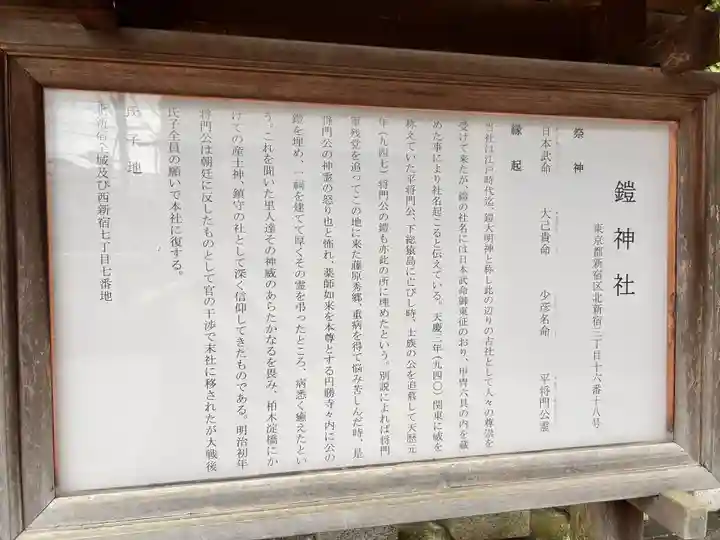 鎧神社
東京都新宿区北新宿三丁目十六番十八号
祭神
日本武命 大己貴命 少彦名命 平将門公霊
縁起
当社は江戸時代迄、鎧大明神と称し此の辺りの古社として人々の尊崇を
受けて来たが、鎧の社名には日本武命御東征のおり、甲冑六具の内を蔵
めた事により社名起こると伝えている。天慶三年(九四〇)関東に威を
称えていた平将門公、下総猿島に亡びし時、土族の公を追慕して天暦元
年(九四七)将門公の鎧も亦此の所に埋めたという。別説によれば将門
軍残党を追ってこの地に来た藤原秀郷、重病を得て悩み苦しんだ時、是
将門公の神霊の怒り也と怖れ、薬師如来を本尊とする円勝寺々内に公の
鎧を埋め、一祠を建てて厚くその霊を弔ったところ、病悉く癒えたとい
う。これを聞いた里人達その神威のあらたかなるを畏み、柏木淀橋にか
けての産土神、鎮守の社として深く信仰してきたものである。明治初年
将門公は朝廷に反したものとして官の干渉で末社に移されたが大戦後
氏子全員の願いで本社に復する。
氏子地
北新宿全域及び西新宿七丁目七番地